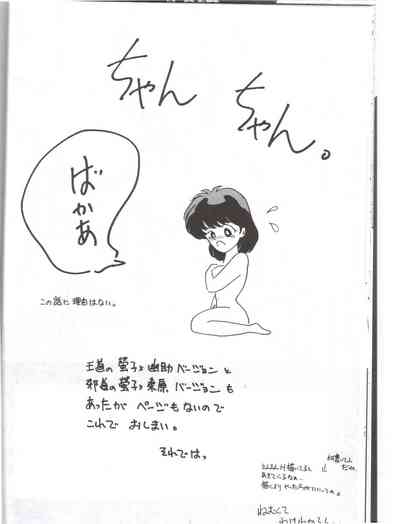 ちゃん
ちゃん。
ばかあ
この話に理由はない。
王道の螢子と幽助バージョンと
邪道の螢子と桑原バージョンも
あったが ページもないので
これで おしまい。
それでは。
ねむくて